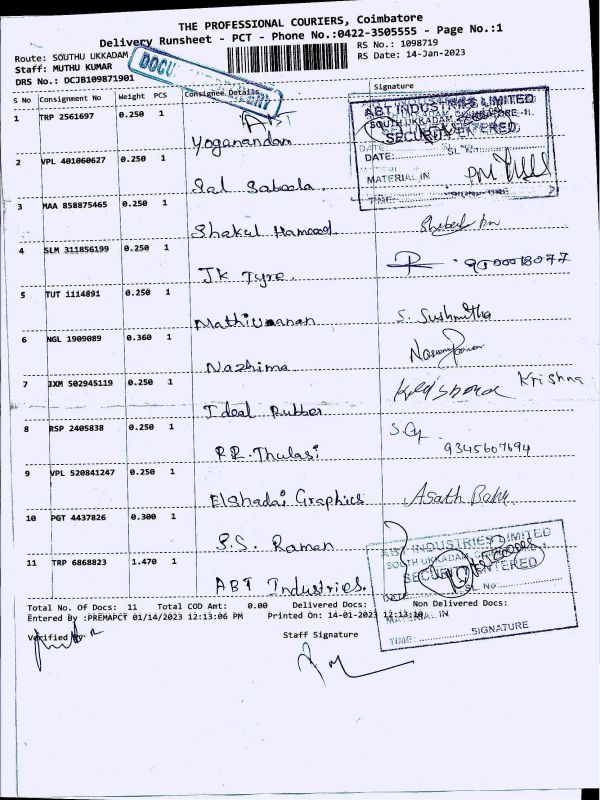 THE PROFESSIONAL COURIERS, Coimbatore
Delivery Runsheet - PCT - Phone No.:0422-3505555 - Page No.:1
Route: SOUTHU UKKADAM
RS No.: 1098719
Staff: MUTHU KUMAR
RS Date: 14-Jan-2023
DRS No.: DCJB109871901
S No Consignment No Weight PCS Consignee Details Signature
1 TRP 2561697 0.250 1 ABT
Yoganandam
ABT INDUSTRIES LIMITED
SOUTH UKKADAM, COIMBATORE
SECURITY ENTERED
DATE: SL No:
MATERIAL IN
TIME:
2 VPL 401060627 0.250 1
Sal Saboola.
3 MAA 858875465 0.250 1
Shakul Hameed
4 SLM 311856199 0.250 1
JK Tyre.
5 TUT 1114891 0.250 1
S. Sushmitha
6 NGL 1909089 0.360 1
Nazhima
7 IXM 502945119 0.250 1
Ideal Rubber
Krishna
8 RSP 2405838 0.250 1
R.R. Thulasi
9345607694
9 VPL 520841247 0.250 1
Elshadai Graphics Asath Babu
10 PGT 4437826 0.300 1
S.S. Raman
11 TRP 6868823 1.470 1
ABT Industries.
ABT INDUSTRIES LIMITED
SOUTH UKKADAM
SECURITY ENTERED
DATE: SL NO:
MATERIAL IN
TIME: SIGNATURE
Total No. Of Docs: 11 Total COD Amt: 0.00 Delivered Docs: Non Delivered Docs:
Entered By :PREMAPCT 01/14/2023 12:13:06 PM Printed On: 14-01-2023 12:13:10
Verified By Staff Signature